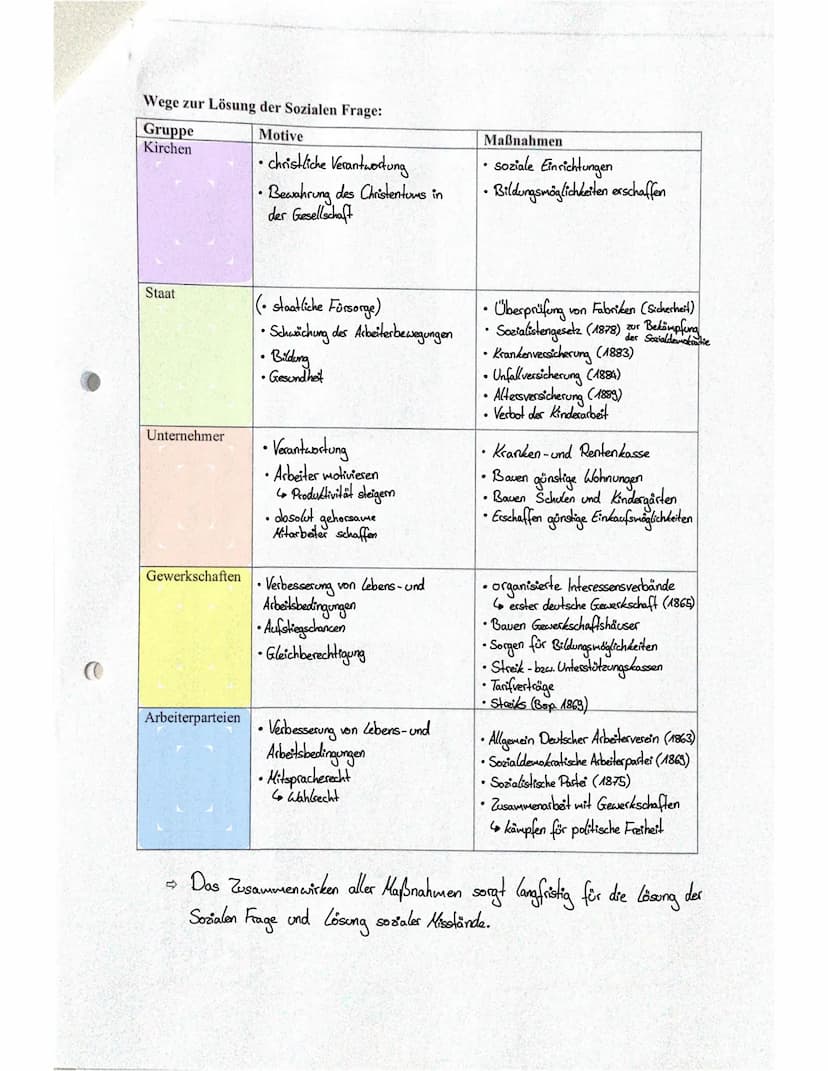 Wege zur Lösung der Sozialen Frage:
Gruppe
Motive
Maßnahmen
Kirchen
• christliche Verantwortung
• Bewahrung des Christentums in
der Gesellschaft
• soziale Einrichtungen
• Bildungsmöglichkeiten erschaffen
Staat
(• staatliche Fürsorge)
• Schwächung des Arbeiterbewegungen
• Bildung
• Gesundheit
• Überprüfung von Fabriken (Sicherheit)
• Sozialistengesetz (1878) zur Bekämpfung
der Sozialdemokratie
• Krankenversicherung (1883)
• Unfallversicherung (1884)
• Altersversicherung (1889)
• Verbot der Kinderarbeit
Unternehmer
• Verantwortung
• Arbeiter motivieren
↳ Produktivität steigern
• absolut gehorsame
Mitarbeiter schaffen
• Kranken- und Rentenkasse
• Bauen günstige Wohnungen
• Bauen Schulen und Kindergärten
• Erschaffen günstige Einkaufsmöglichkeiten
Gewerkschaften
• Verbesserung von Lebens- und
Arbeitsbedingungen
• Aufstiegschancen
• Gleichberechtigung
• organisierte Interessensverbände
↳ erster deutsche Gewerkschaft (1865)
• Bauen Gewerkschaftshäuser
• Sorgen für Bildungsmöglichkeiten
• Streik- bzw. Unterstützungskassen
• Tarifverträge
• Streiks (Bsp. 1869)
Arbeiterparteien
• Verbesserung von Lebens- und
Arbeitsbedingungen
• Mitspracherecht
↳ Wahlrecht
• Allgemein Deutscher Arbeiterverein (1863)
• Sozialdemokratische Arbeiterpartei (1869)
• Sozialistische Partei (1875)
• Zusammenarbeit mit Gewerkschaften
↳ kämpfen für politische Freiheit
⇒ Das Zusammenwirken aller Maßnahmen sorgt langfristig für die Lösung der
Sozialen Frage und Lösung sozialer Missstände.